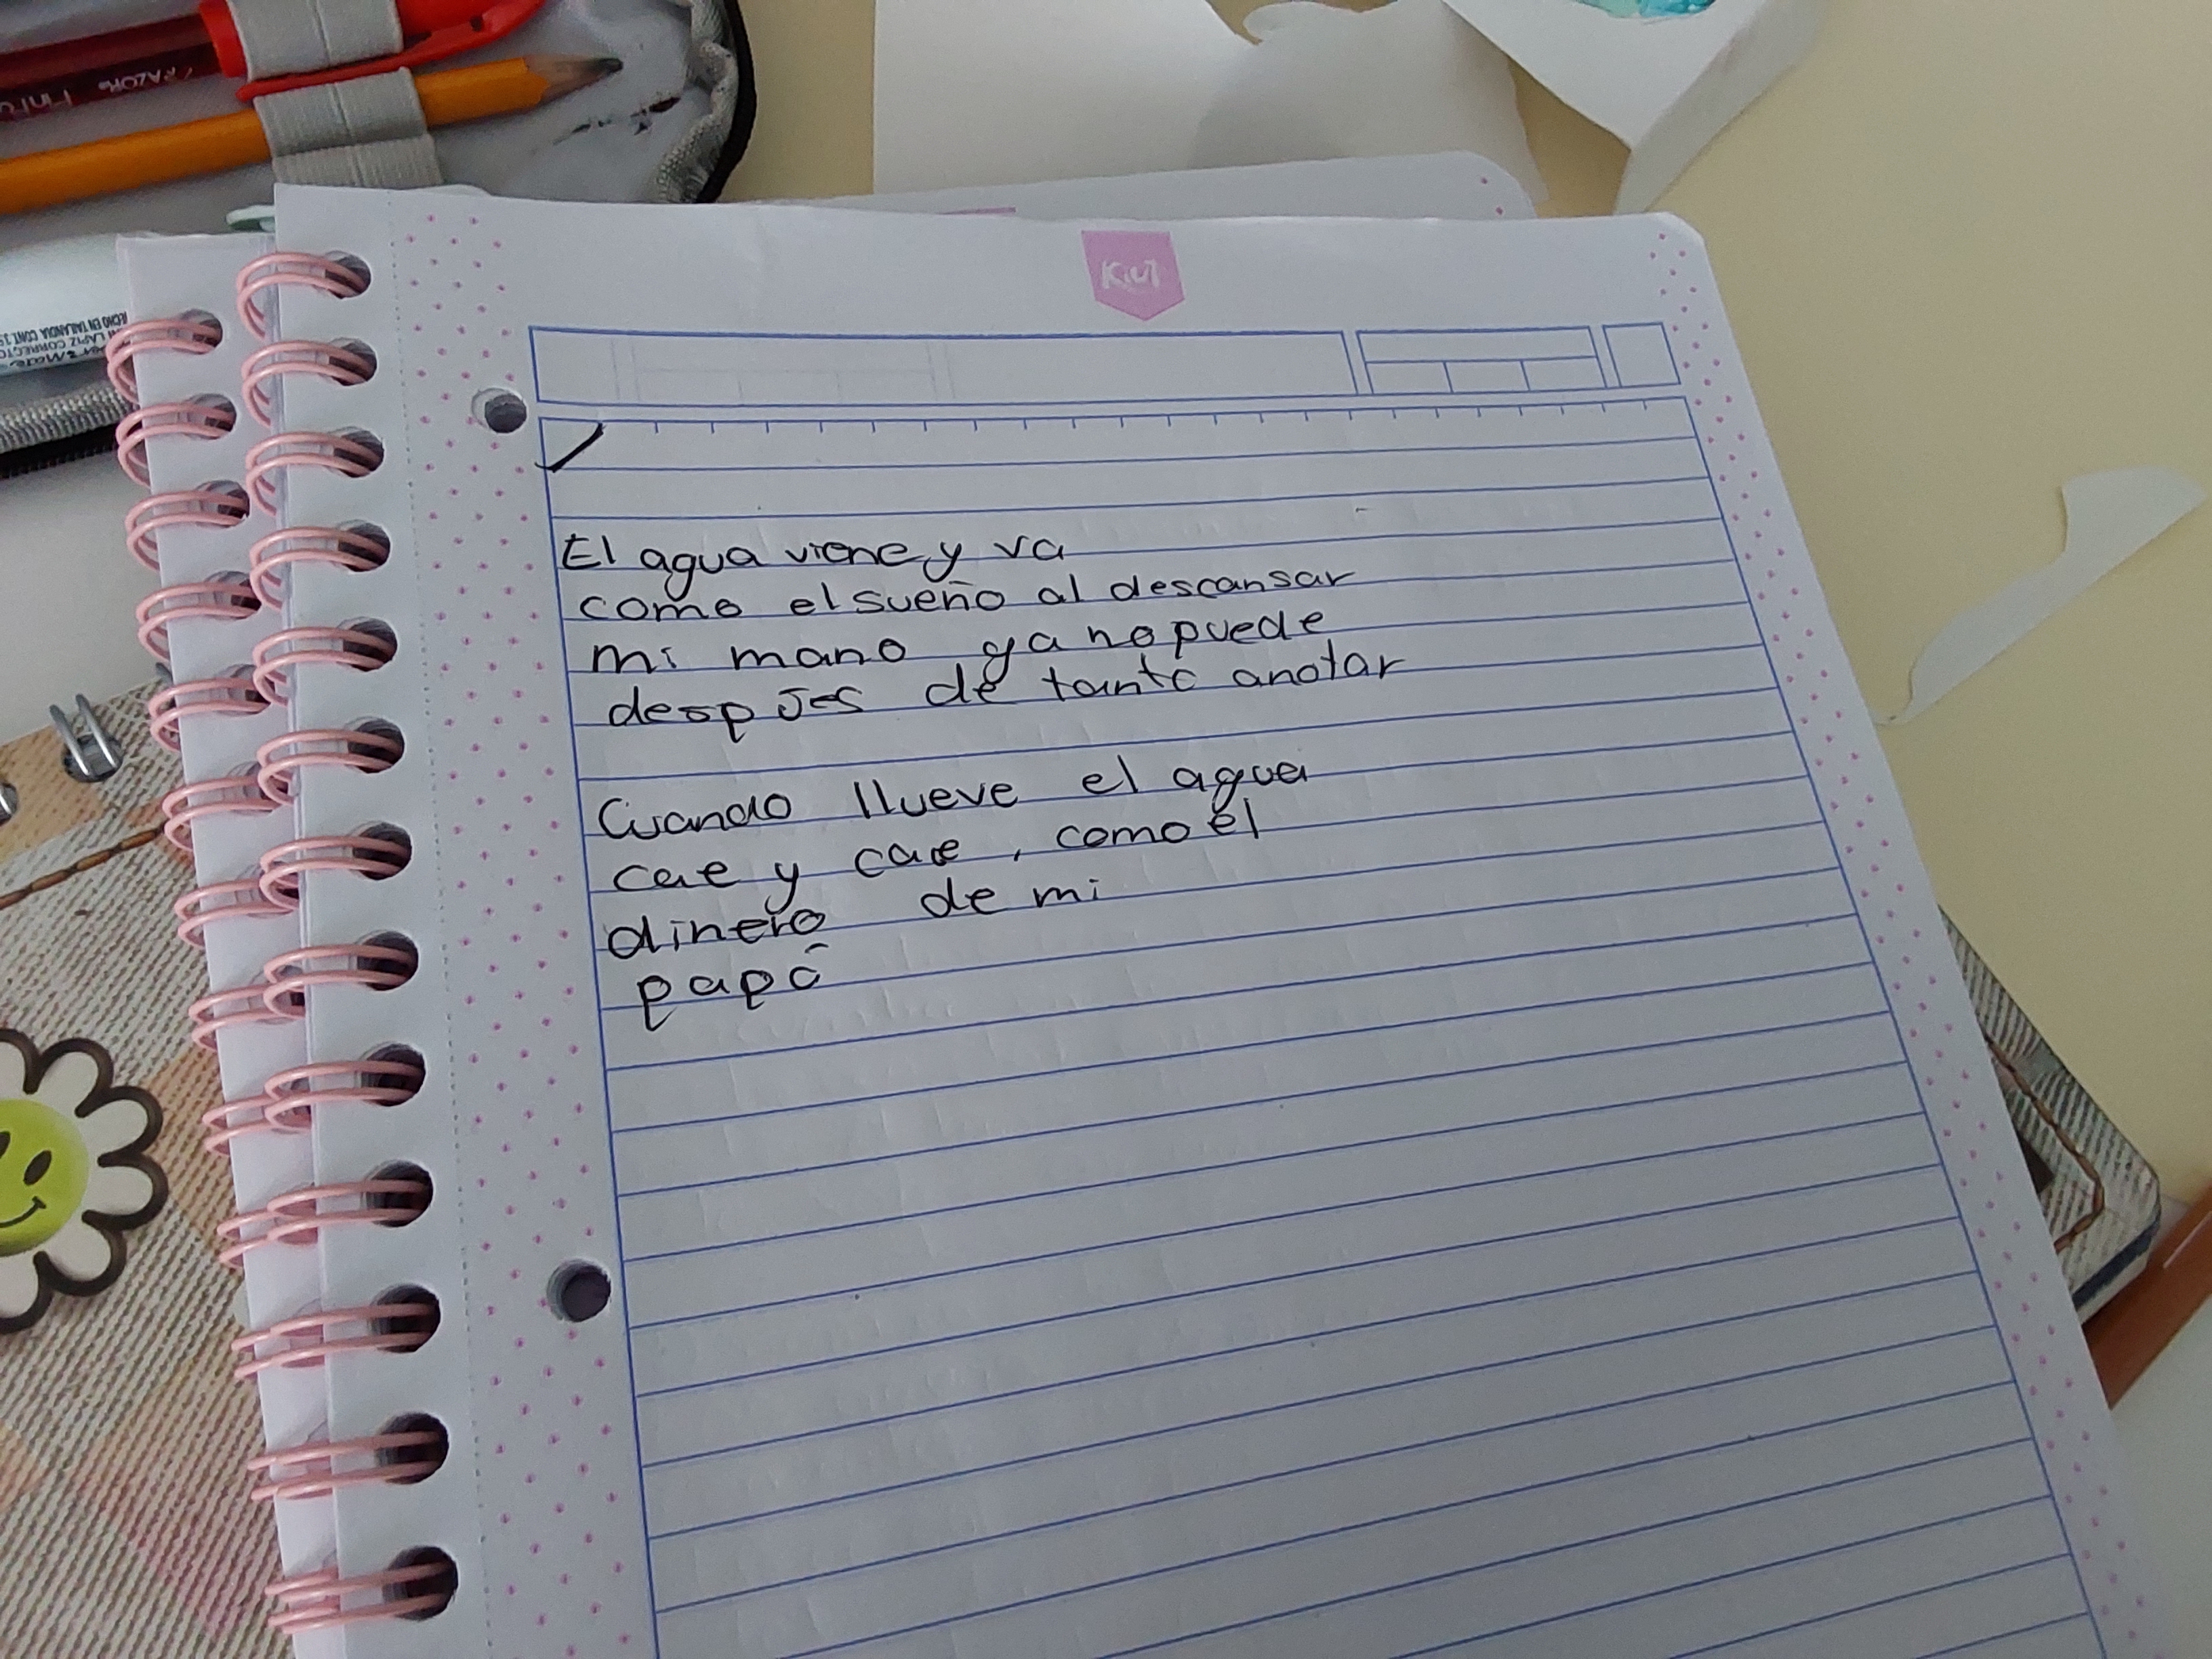 Kiut
El agua viene y va
como el sueño al descansar
mi mano ya no puede
despues de tanto anotar
Cuando llueve el agua
cae y cae, como él
dinero de mi
papá
HECHO EN TAILANDIA
LAPIZ CORRECTO